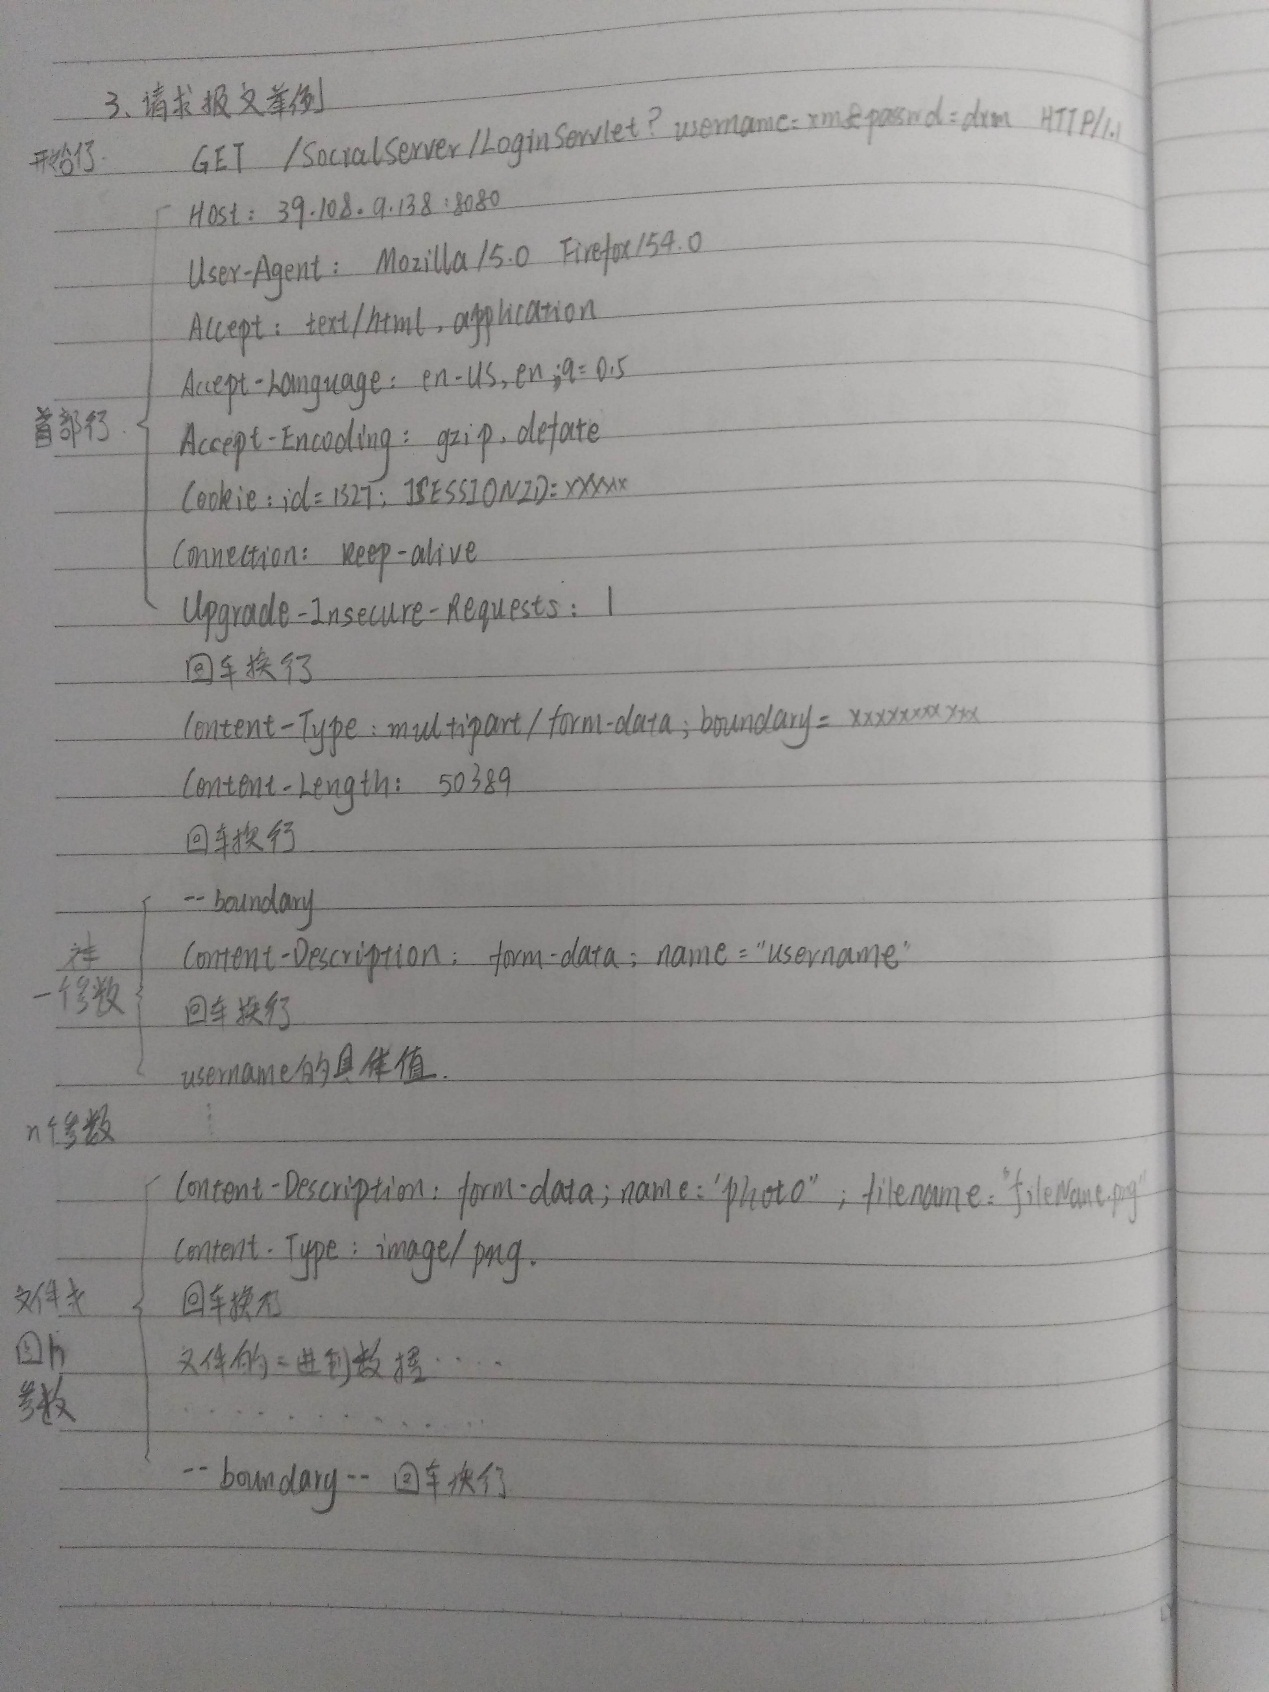 3、请求报文举例
开始行 GET /SocialServer/LoginServlet? username=xm&passwd=dxm HTTP/1.1
Host: 39.108.9.138:8080
User-Agent: Mozilla/5.0 Firefox/54.0
Accept: text/html, application
Accept-Language: en-US, en;q=0.5
首部行 Accept-Encoding: gzip, defate
Cookie: id=1327; JSESSIONID=xxxxx
Connection: keep-alive
Upgrade-Insecure-Requests: 1
回车换行
Content-Type: multipart/form-data; boundary= xxxxxxxxxxx
Content-Length: 50389
回车换行
--boundary
Content-Description: form-data; name="username"
一个参数 回车换行
username的具体值.
n个参数
Content-Description: form-data; name="photo"; filename="fileName.png"
Content-Type: image/png.
文件或 回车换行
图片 文件的二进制数据·····
参数 ············
--boundary-- 回车换行